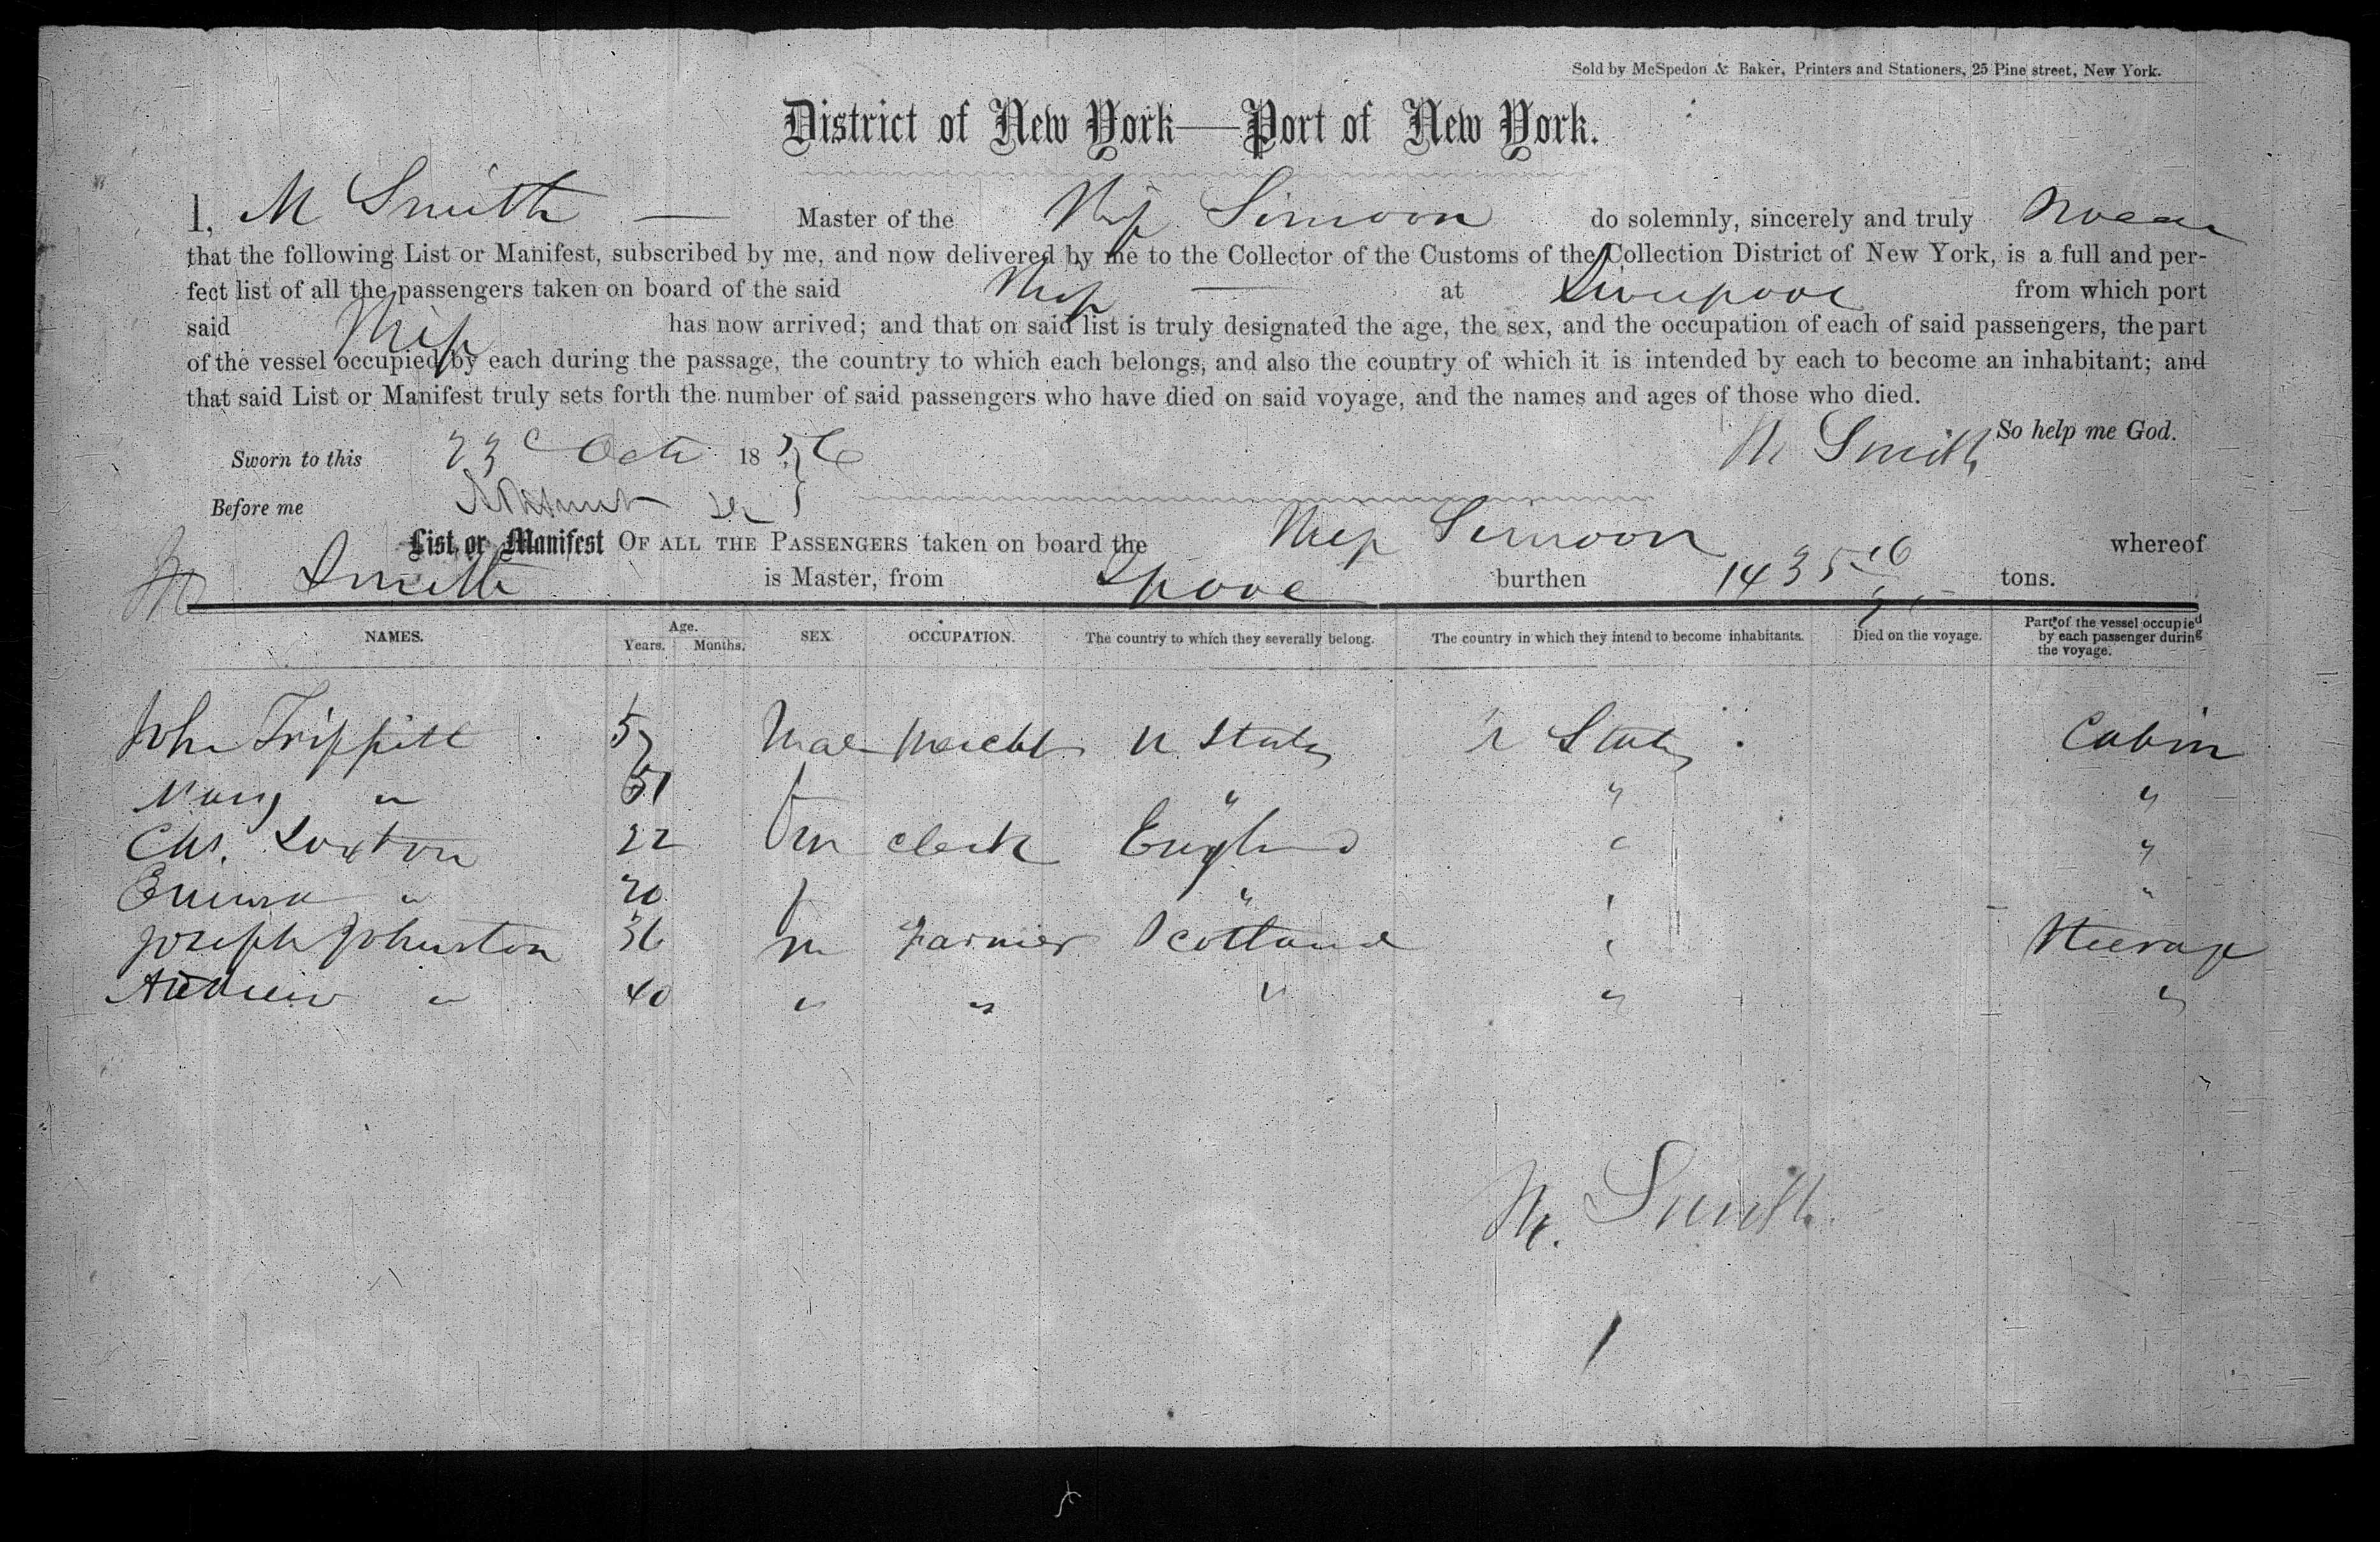 Sold by McSpedon & Baker, Printers and Stationers, 25 Pine street, New York.
District of New York—Port of New York.
I, M Smith — Master of the Ship Simoon do solemnly, sincerely and truly swear
that the following List or Manifest, subscribed by me, and now delivered by me to the Collector of the Customs of the Collection District of New York, is a full and per-
fect list of all the passengers taken on board of the said Ship — at Liverpool from which port
said Ship has now arrived; and that on said list is truly designated the age, the sex, and the occupation of each of said passengers, the part
of the vessel occupied by each during the passage, the country to which each belongs, and also the country of which it is intended by each to become an inhabitant; and
that said List or Manifest truly sets forth the number of said passengers who have died on said voyage, and the names and ages of those who died.
So help me God.
Sworn to this 23d Oct 1856 M Smith
Before me
List, or Manifest OF ALL THE PASSENGERS taken on board the Ship Simoon whereof
M Smith is Master, from Lpool burthen 1435 tons.
NAMES. Age. Years. Months. SEX. OCCUPATION. The country to which they severally belong. The country in which they intend to become inhabitants. Died on the voyage. Part of the vessel occupied by each passenger during the voyage.
John Trippitt 57 Male Mercht U States U States Cabin
Mary " 51 f " " "
Chs. Loxton 22 m Clerk England " "
Emma " 20 f " " "
Joseph Johnston 36 m Farmer Scotland " Steerage
Andrew " 40 " " " " "
M. Smith